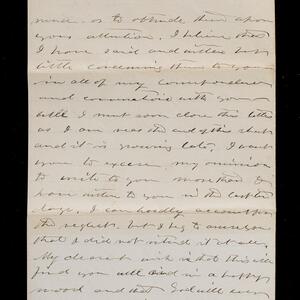 as to obtrude them upon
your attention. I believe that
I have said and written very
little concerning them to you
in all of my correspondence
and conversation with you
well I must soon close this letter
as I am near the end of this sheet
and it is growing late, I want
you to excuse my omission
to write to you more than I
have written to you in the last ten
days, I can hardly account for
the neglect. but I beg to assure you
that I did not intend it at all.
My dearest wish is that this will
find you well and in a happy
mood and that God will ever